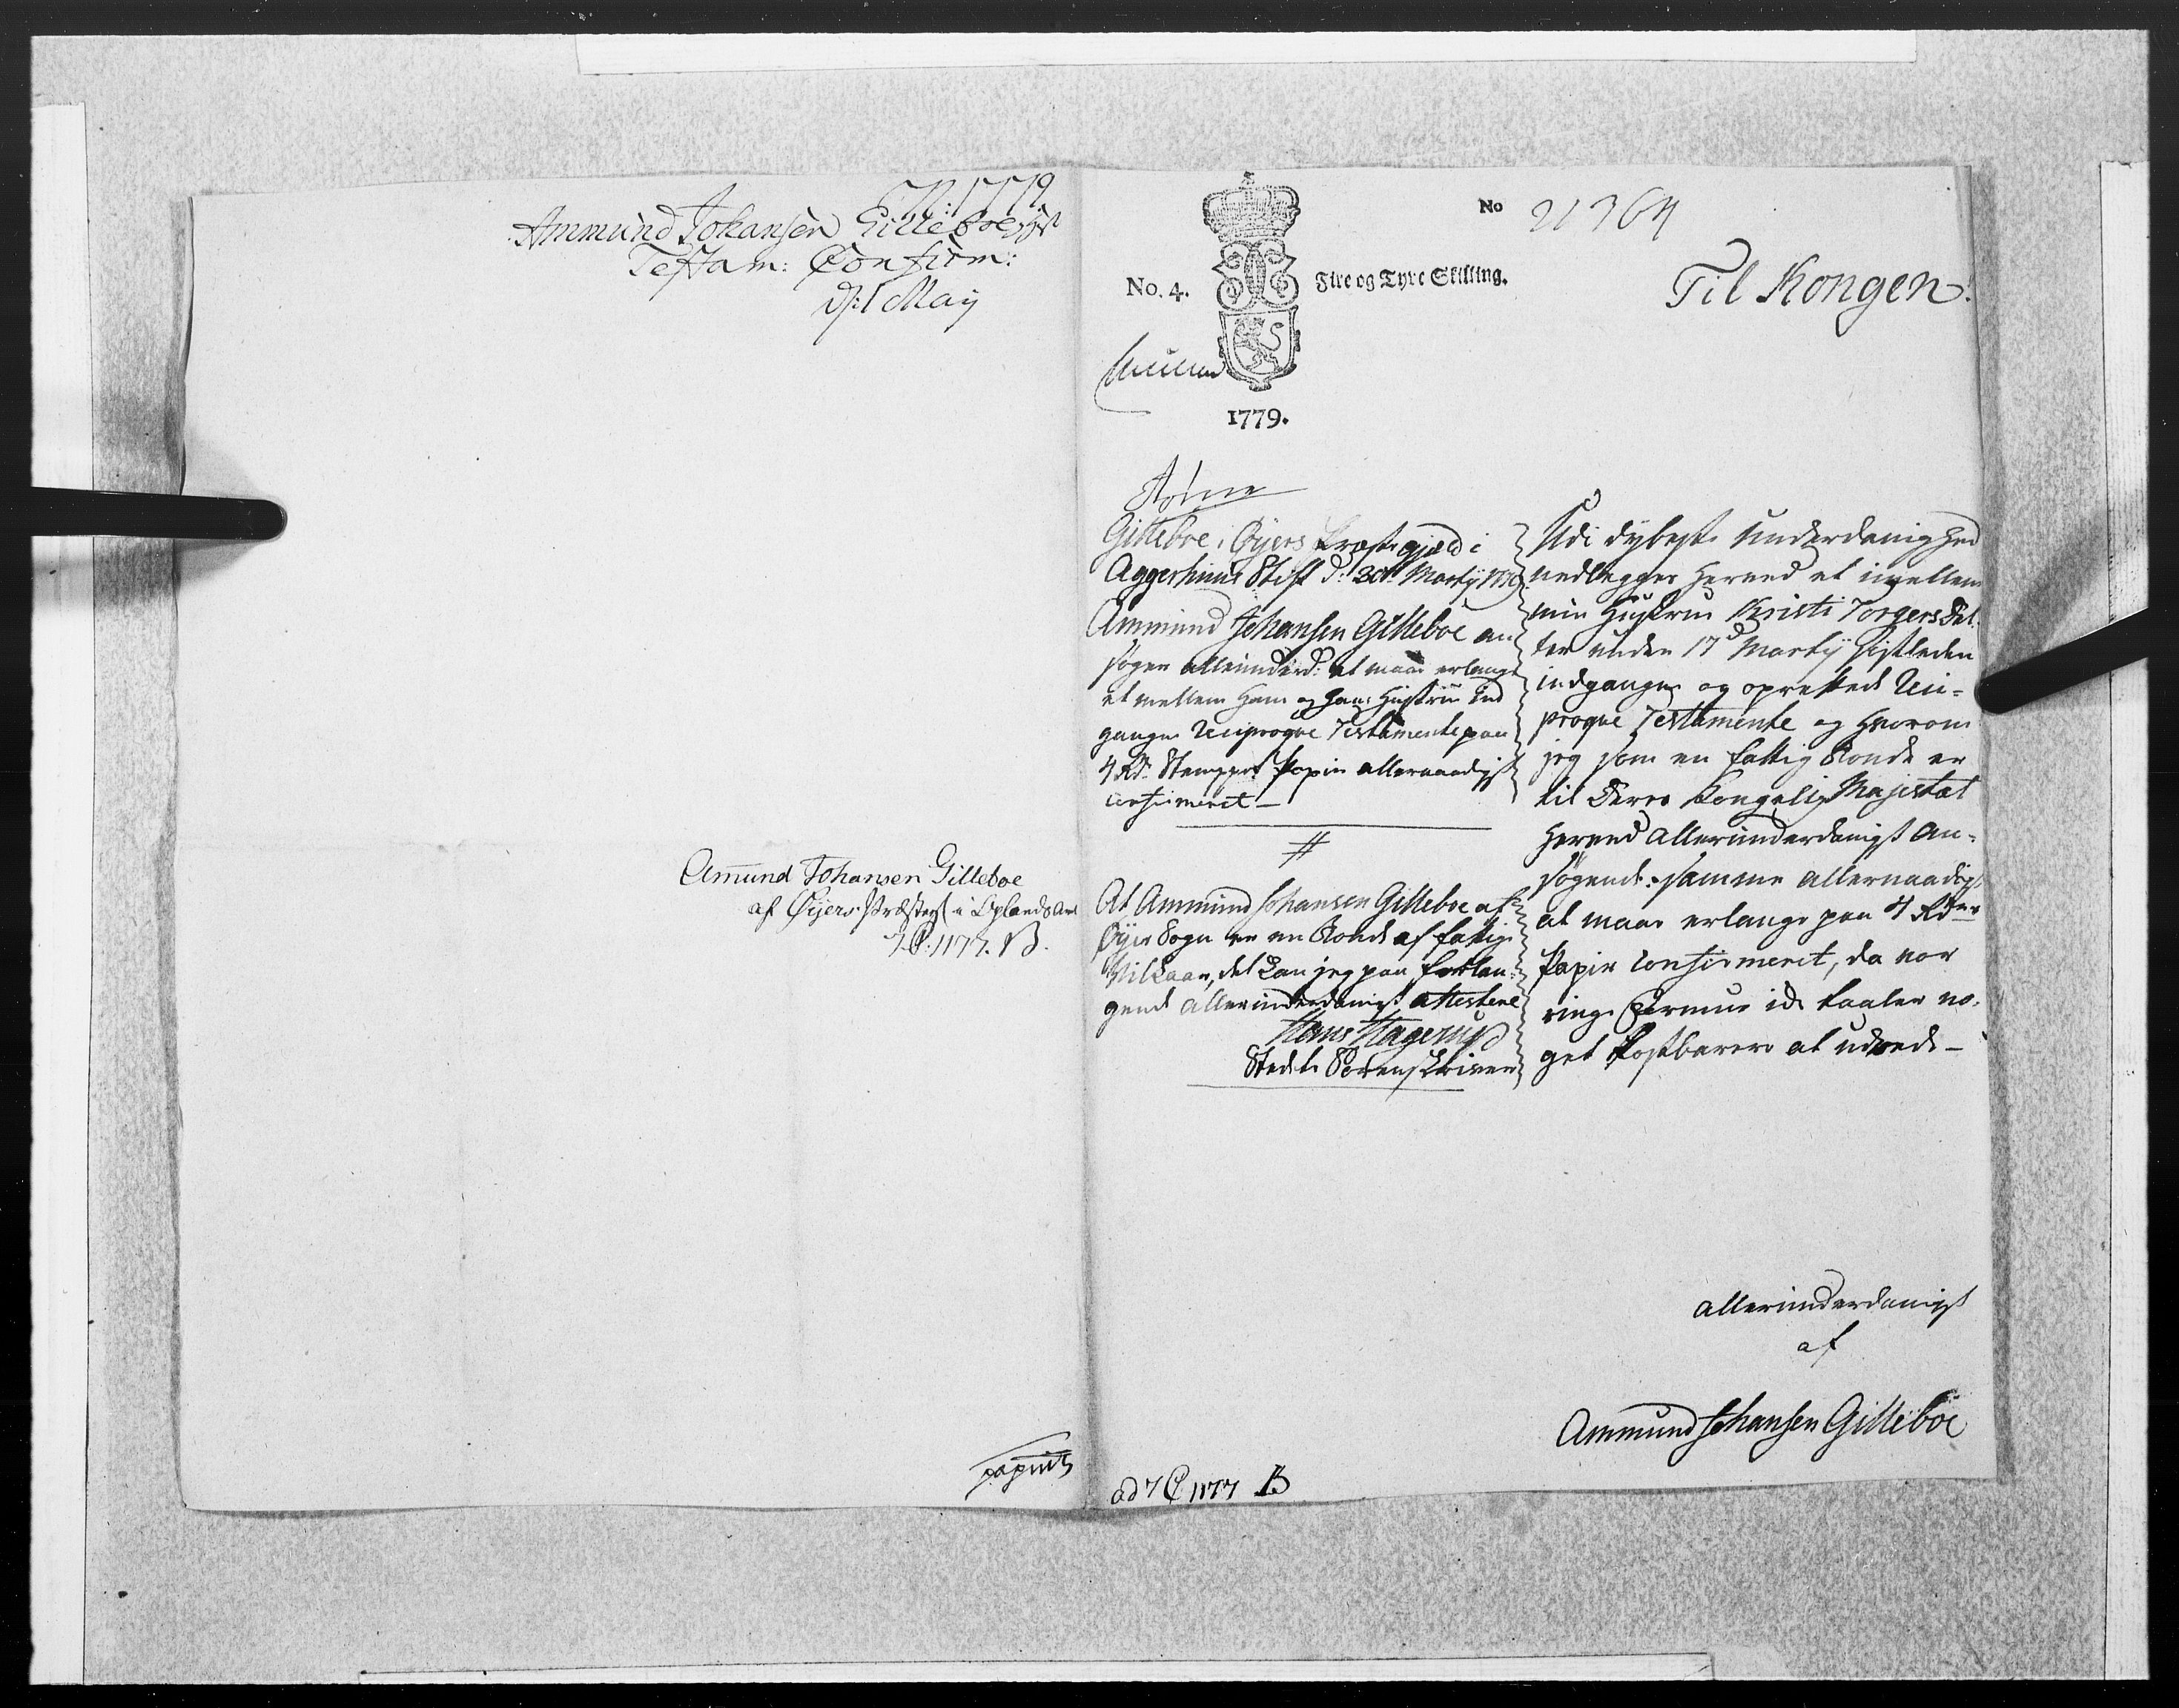 N: 1779
Ammund Johansen Gilleboe
Testam: Confirm:
d: 1 May
Amund Johansen Gilleboe
af Öyers Præsteg: i Oplands Amt
7 C: 1177. B.
No. 4.
Fire og Tyve Skilling.
1779.
No 21364
Til Kongen!
Gilleboe i Öyers Præste gjæld i
Aggershuus Stift d: 20de Martÿ 1779
Ammund Johansen Gilleboe an
søger allerunderd: at maae erlange
et mellem ham og hans Hustrue Ind
gangne Reciproqve Testamente paa
4 Rdr Stemplet Papir allernaadigst
confirmeret —
#
At Ammund Johansen Gilleboe af
Öyer Sogn er en Bonde af fattige
Vilkaar, det kan jeg paa forlan-
gende allerunderdanigst attestere
Hans Hagerup
Stedets Sorenskriver
Udi dybeste Underdanighed
nedlegges herved et imellem
min Hustrue Kristi Torgers Dat-
ter under 17de Martÿ Sistleden
indgangne og oprettede Reci-
proqve Testamente og hvorom
jeg som en fattig Bonde er
til Deres Kongelig Majestæt
herved allerunderdanigst An-
søgende: samme allernaadigst
at maae erlange paa 4 Rdrs
Papir confirmeret, da vor
ringe Formue ei taaler no-
get kostbarere at udrede —
allerunderdanigst
af
Ammund Johansen Gilleboe
ad 7 C 1177 B